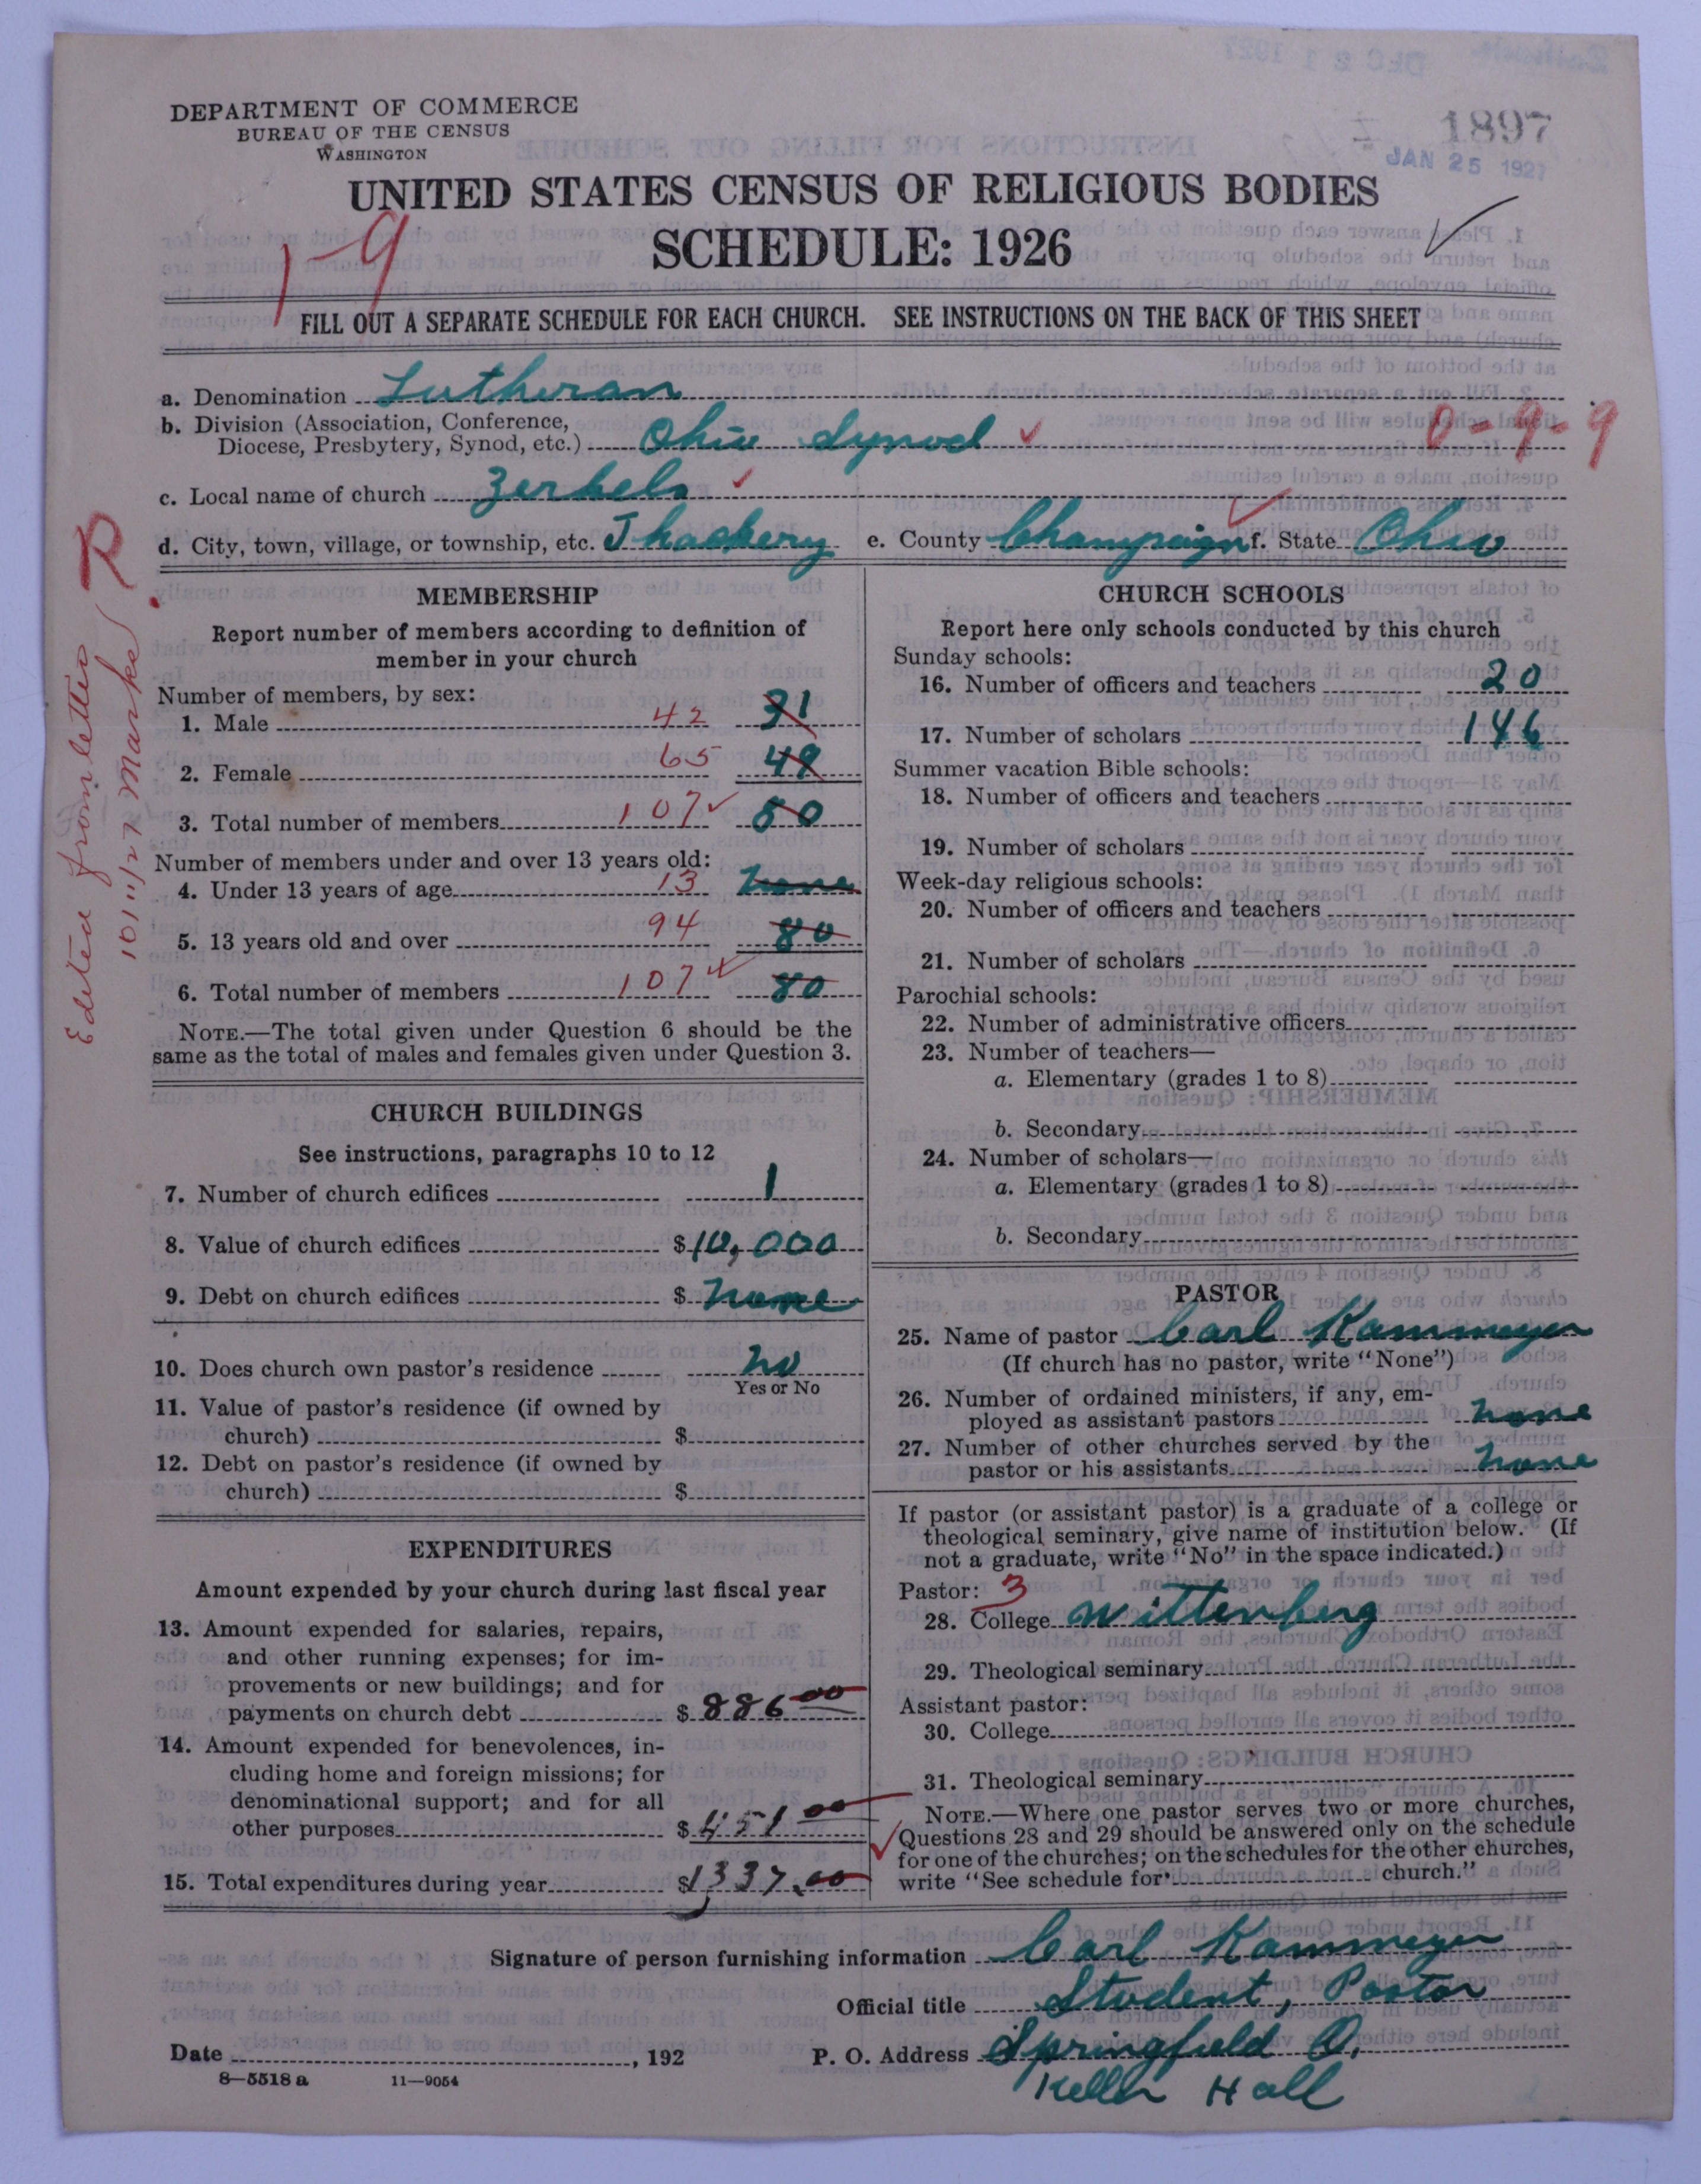 DEPARTMENT OF COMMERCE
BUREAU OF THE CENSUS
WASHINGTON
1897
JAN 25 1927
UNITED STATES CENSUS OF RELIGIOUS BODIES
SCHEDULE: 1926
1-9
FILL OUT A SEPARATE SCHEDULE FOR EACH CHURCH. SEE INSTRUCTIONS ON THE BACK OF THIS SHEET
a. Denomination Lutheran
b. Division (Association, Conference,
Diocese, Presbytery, Synod, etc.) Ohio Synod
0-9-9
c. Local name of church Zerkels
d. City, town, village, or township, etc. Thackery e. County Champaign f. State Ohio
Edited from letter
10/11/27 Marke
R
MEMBERSHIP
Report number of members according to definition of
member in your church
Number of members, by sex:
1. Male 42 31
2. Female 65 49
3. Total number of members 107 80
Number of members under and over 13 years old:
4. Under 13 years of age 13 none
5. 13 years old and over 94 80
6. Total number of members 107 80
NOTE.—The total given under Question 6 should be the
same as the total of males and females given under Question 3.
CHURCH BUILDINGS
See instructions, paragraphs 10 to 12
7. Number of church edifices 1
8. Value of church edifices $10,000
9. Debt on church edifices $ none
10. Does church own pastor's residence no
Yes or No
11. Value of pastor's residence (if owned by
church) $
12. Debt on pastor's residence (if owned by
church) $
EXPENDITURES
Amount expended by your church during last fiscal year
13. Amount expended for salaries, repairs,
and other running expenses; for im-
provements or new buildings; and for
payments on church debt $ 886 00
14. Amount expended for benevolences, in-
cluding home and foreign missions; for
denominational support; and for all
other purposes $ 451 00
15. Total expenditures during year $1337.00
CHURCH SCHOOLS
Report here only schools conducted by this church
Sunday schools:
16. Number of officers and teachers 20
17. Number of scholars 146
Summer vacation Bible schools:
18. Number of officers and teachers
19. Number of scholars
Week-day religious schools:
20. Number of officers and teachers
21. Number of scholars
Parochial schools:
22. Number of administrative officers
23. Number of teachers—
a. Elementary (grades 1 to 8)
b. Secondary
24. Number of scholars—
a. Elementary (grades 1 to 8)
b. Secondary
PASTOR
25. Name of pastor Carl Kammeyer
(If church has no pastor, write "None")
26. Number of ordained ministers, if any, em-
ployed as assistant pastors none
27. Number of other churches served by the
pastor or his assistants none
If pastor (or assistant pastor) is a graduate of a college or
theological seminary, give name of institution below. (If
not a graduate, write "No" in the space indicated.)
Pastor: 3
28. College Wittenberg
29. Theological seminary
Assistant pastor:
30. College
31. Theological seminary
NOTE.—Where one pastor serves two or more churches,
Questions 28 and 29 should be answered only on the schedule
for one of the churches; on the schedules for the other churches,
write "See schedule for church."
Signature of person furnishing information Carl Kammeyer
Official title Student, Pastor
Date , 192 P. O. Address Springfield O.
8—5518 a 11—9054
Keller Hall